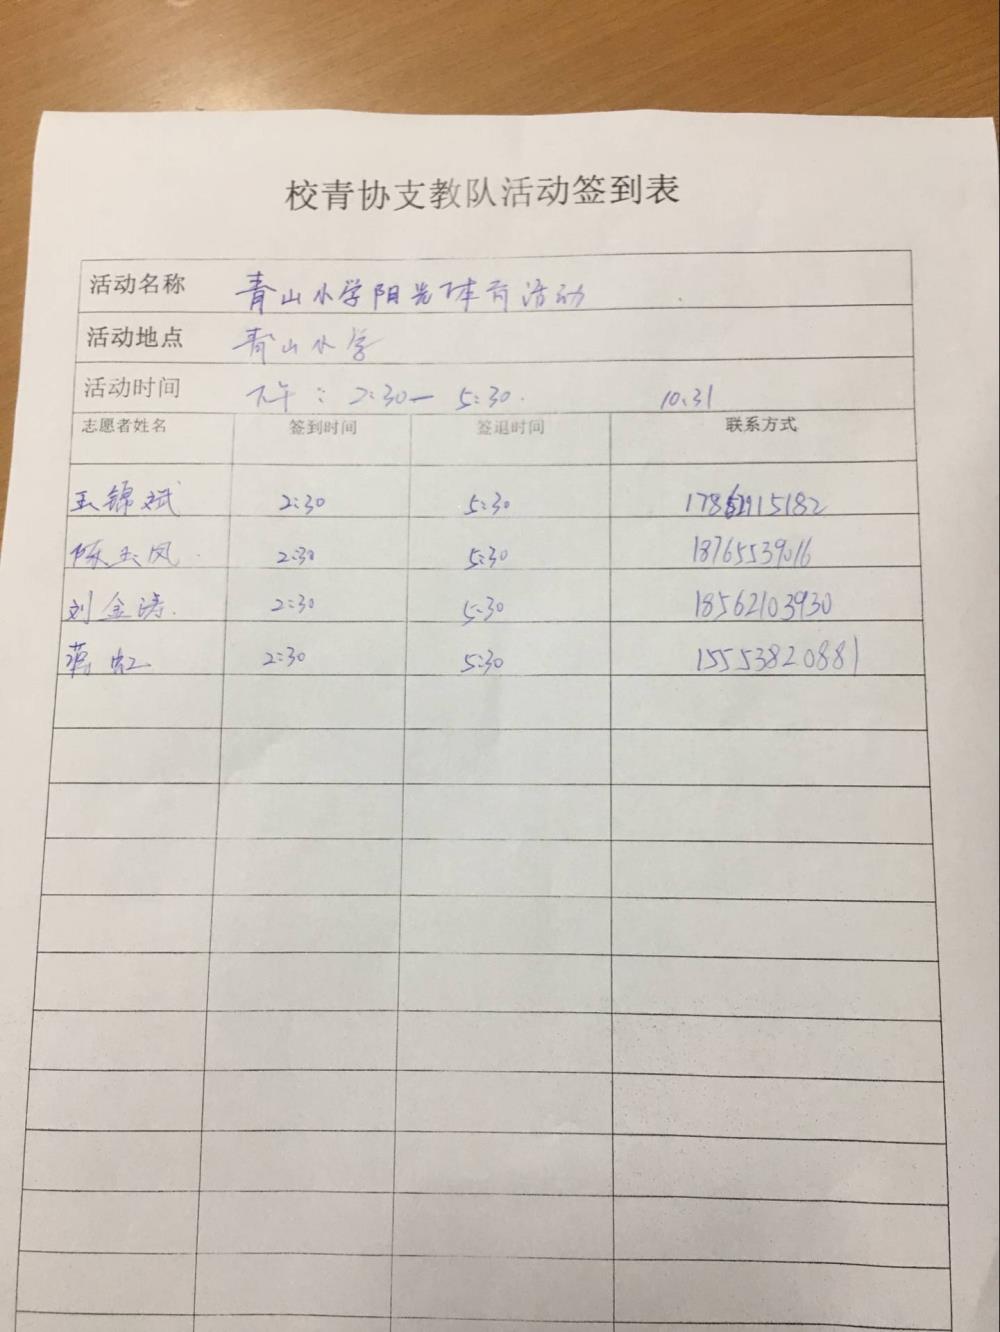 校青协支教队活动签到表
活动名称 青山小学阳光体育活动
活动地点 青山小学
活动时间 下午：2:30— 5:30. 10.31
志愿者姓名 签到时间 签退时间 联系方式
王锦斌 2:30 5:30
陈玉凤 2:30 5:30 18765539016
刘金涛. 2:30 5:30 18562103930
蒋虹 2:30 5:30 15553820881